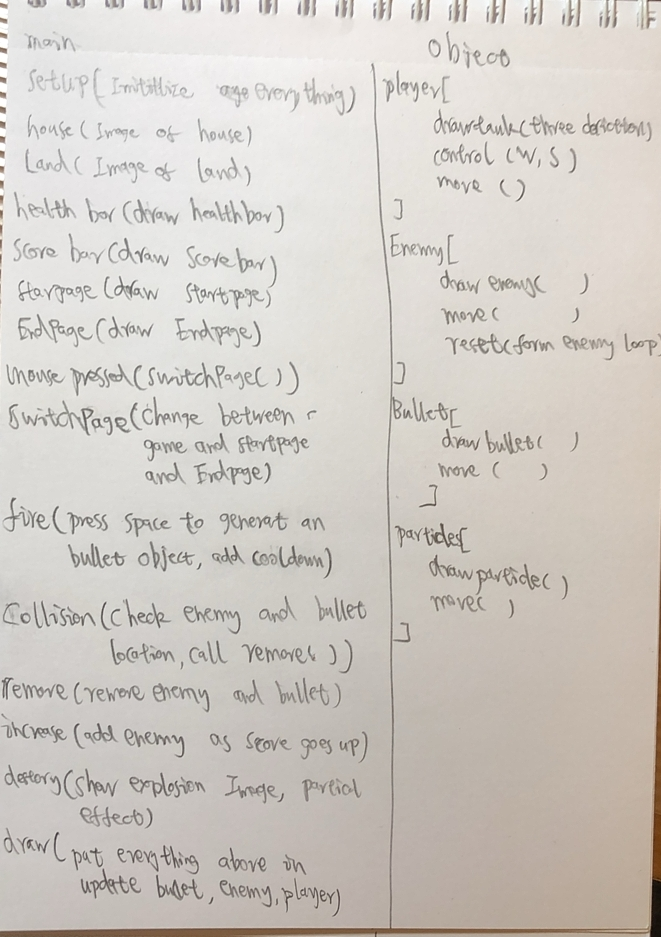 main
setup(Initillize age everything)
house(Image of house)
Land(Image of Land)
health bar(draw healthbar)
Score bar(draw Scorebar)
Starpage(draw Startpage)
EndPage(draw Endpage)
mouse pressed(switchPage())
SwitchPage(Change between
game and startpage
and Endpage)
fire(press space to generat an
bullet object, add cooldown)
Collision(check enemy and bullet
location, call remove())
remove(remove enemy and bullet)
increase(add enemy as score goes up)
destory(show explosion Image, partical
effect)
draw(put everything above in
update bullet, enemy, player)
Object
player[
drawtank(three derection)
control (W, S)
move ()
]
Enemy[
draw enemy( )
move( )
reset(form enemy loop)
]
Bullet[
draw bullet( )
move ( )
]
particles[
draw particle( )
move( )
]